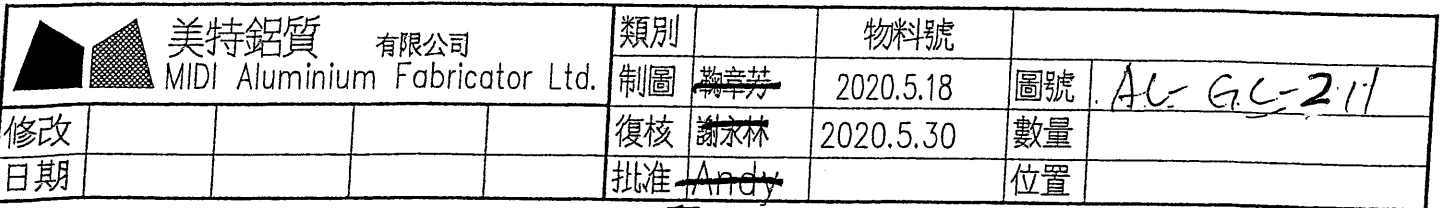 美特鋁質 有限公司
MIDI Aluminium Fabricator Ltd.
類別 物料號
制圖 鞠章芳 2020.5.18 圖號 AL-GC-211
修改 復核 謝永林 2020.5.30 數量
日期 批准 Andy 位置